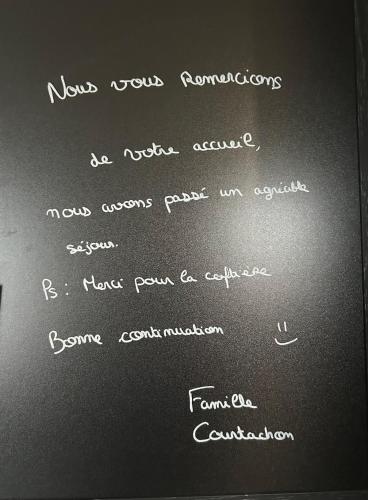 Nous vous Remercions
de votre accueil,
nous avons passé un agréable
séjour.
Ps : Merci pour la caftière
Bonne continuation
Famille
Courtachon